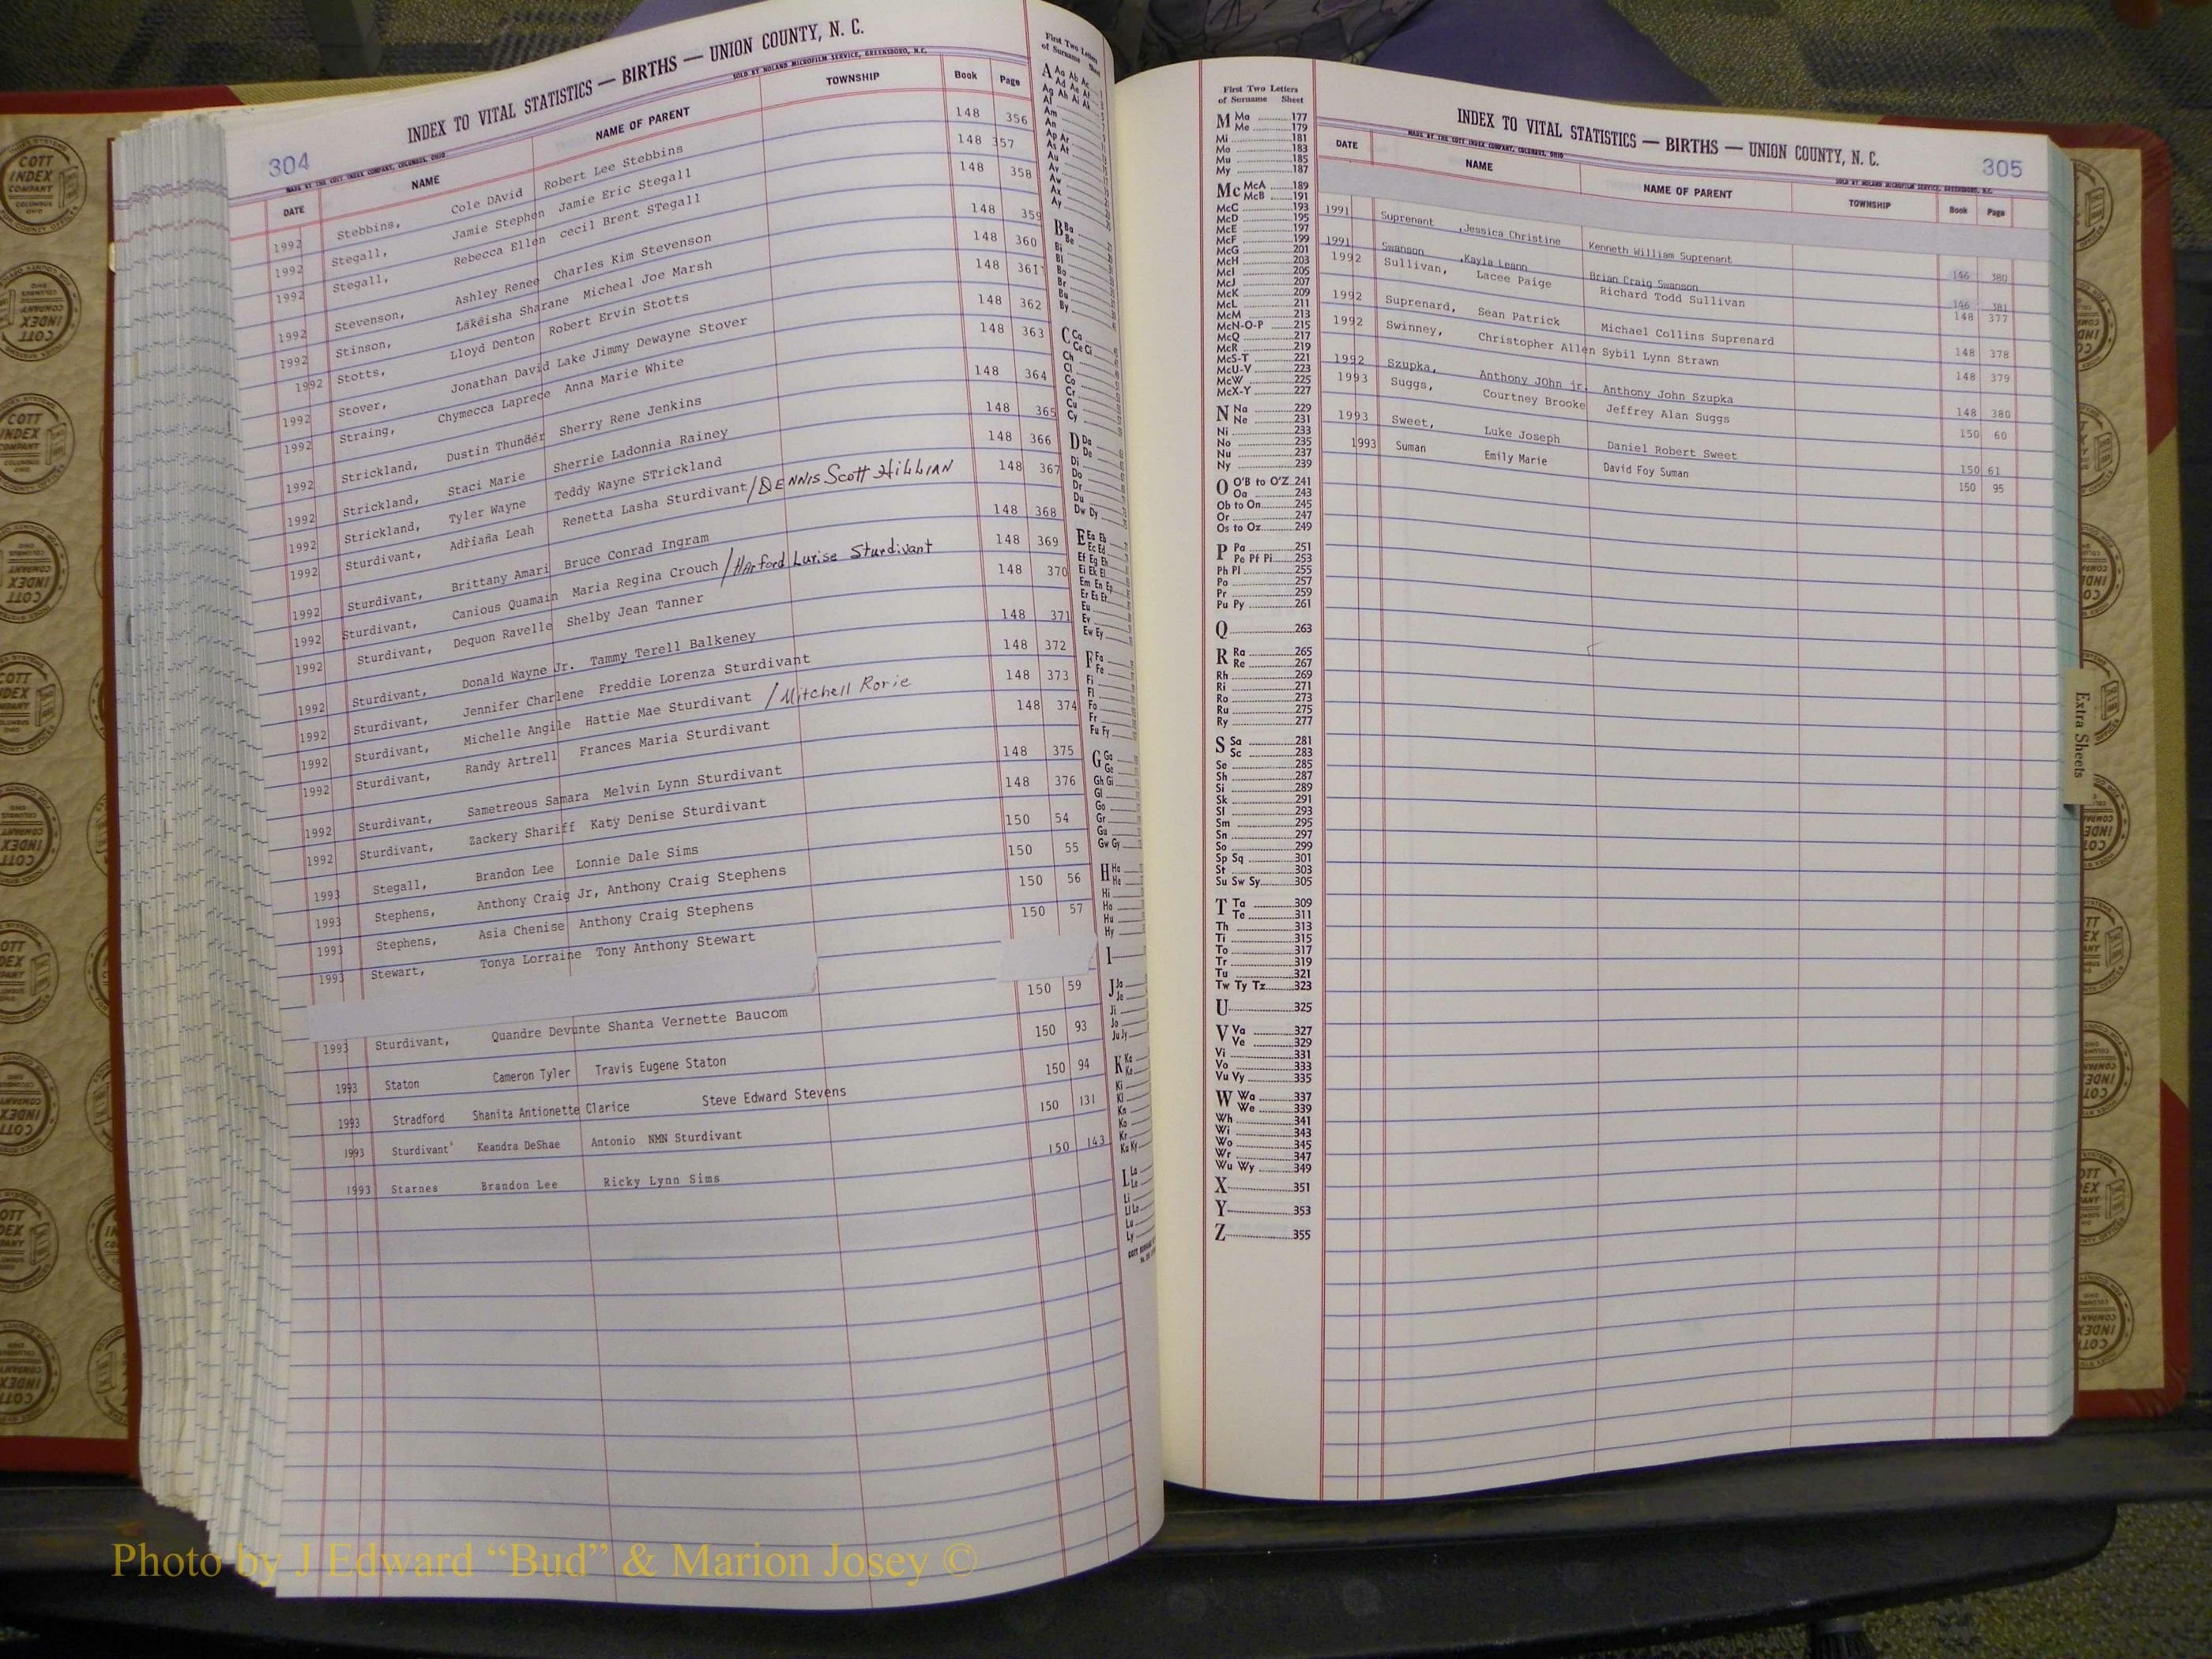 304
INDEX TO VITAL STATISTICS — BIRTHS — UNION COUNTY, N. C.
MADE BY THE COTT INDEX COMPANY, COLUMBUS, OHIO SOLD BY NOLAND MICROFILM SERVICE, GREENSBORO, N.C.
DATE NAME NAME OF PARENT TOWNSHIP Book Page
1992 Stebbins, Cole DAvid Robert Lee Stebbins 148 356
1992 Stegall, Jamie Stephen Jamie Eric Stegall 148 357
1992 Stegall, Rebecca Ellen cecil Brent STegall 148 358
1992 Stevenson, Ashley Renee Charles Kim Stevenson 148 359
1992 Stinson, Lakeisha Sharane Micheal Joe Marsh 148 360
1992 Stotts, Lloyd Denton Robert Ervin Stotts 148 361
1992 Stover, Jonathan David Lake Jimmy Dewayne Stover 148 362
1992 Straing, Chymecca Laprece Anna Marie White 148 363
1992 Strickland, Dustin Thunder Sherry Rene Jenkins 148 364
1992 Strickland, Staci Marie Sherrie Ladonnia Rainey 148 365
1992 Strickland, Tyler Wayne Teddy Wayne STrickland 148 366
1992 Sturdivant, Adriana Leah Renetta Lasha Sturdivant/DENNIS Scott HiLLIAN 148 367
1992 Sturdivant, Brittany Amari Bruce Conrad Ingram 148 368
1992 Sturdivant, Canious Quamain Maria Regina Crouch /HArford Lurise Sturdivant 148 369
1992 Sturdivant, Dequon Ravelle Shelby Jean Tanner 148 370
1992 Sturdivant, Donald Wayne Jr. Tammy Terell Balkeney 148 371
1992 Sturdivant, Jennifer Charlene Freddie Lorenza Sturdivant 148 372
1992 Sturdivant, Michelle Angile Hattie Mae Sturdivant /Mitchell Rorie 148 373
1992 Sturdivant, Randy Artrell Frances Maria Sturdivant 148 374
1992 Sturdivant, Sametreous Samara Melvin Lynn Sturdivant 148 375
1992 Sturdivant, Zackery Shariff Katy Denise Sturdivant 148 376
1993 Stegall, Brandon Lee Lonnie Dale Sims 150 54
1993 Stephens, Anthony Craig Jr, Anthony Craig Stephens 150 55
1993 Stephens, Asia Chenise Anthony Craig Stephens 150 56
1993 Stewart, Tonya Lorraine Tony Anthony Stewart 150 57
1993 Sturdivant, Quandre Devunte Shanta Vernette Baucom 150 59
1993 Staton Cameron Tyler Travis Eugene Staton 150 93
1993 Stradford Shanita Antionette Clarice Steve Edward Stevens 150 94
1993 Sturdivant' Keandra DeShae Antonio NMN Sturdivant 150 131
1993 Starnes Brandon Lee Ricky Lynn Sims 150 143
First Two Letters
of Surname Sheet
M Ma 177
Me 179
Mi 181
Mo 183
Mu 185
My 187
Mc McA 189
McB 191
McC 193
McD 195
McE 197
McF 199
McG 201
McH 203
McI 205
McJ 207
McK 209
McL 211
McM 213
McN-O-P 215
McQ 217
McR 219
McS-T 221
McU-V 223
McW 225
McX-Y 227
N Na 229
Ne 231
Ni 233
No 235
Nu 237
Ny 239
O O'B to O'Z 241
Oa 243
Ob to On 245
Or 247
Os to Oz 249
P Pa 251
Pe Pf Pi 253
Ph Pl 255
Po 257
Pr 259
Pu Py 261
Q 263
R Ra 265
Re 267
Rh 269
Ri 271
Ro 273
Ru 275
Ry 277
S Sa 281
Sc 283
Se 285
Sh 287
Si 289
Sk 291
Sl 293
Sm 295
Sn 297
So 299
Sp Sq 301
St 303
Su Sw Sy 305
T Ta 309
Te 311
Th 313
Ti 315
To 317
Tr 319
Tu 321
Tw Ty Tz 323
U 325
V Va 327
Ve 329
Vi 331
Vo 333
Vu Vy 335
W Wa 337
We 339
Wh 341
Wi 343
Wo 345
Wr 347
Wu Wy 349
X 351
Y 353
Z 355
INDEX TO VITAL STATISTICS — BIRTHS — UNION COUNTY, N. C.
305
MADE BY THE COTT INDEX COMPANY, COLUMBUS, OHIO SOLD BY NOLAND MICROFILM SERVICE, GREENSBORO, N.C.
DATE NAME NAME OF PARENT TOWNSHIP Book Page
1991 Suprenant ,Jessica Christine Kenneth William Suprenant 146 380
1991 Swanson ,Kayla Leann Brian Craig Swanson 146 381
1992 Sullivan, Lacee Paige Richard Todd Sullivan 148 377
1992 Suprenard, Sean Patrick Michael Collins Suprenard 148 378
1992 Swinney, Christopher Allen Sybil Lynn Strawn 148 379
1992 Szupka, Anthony JOhn jr. Anthony John Szupka 148 380
1993 Suggs, Courtney Brooke Jeffrey Alan Suggs 150 60
1993 Sweet, Luke Joseph Daniel Robert Sweet 150 61
1993 Suman Emily Marie David Foy Suman 150 95
Extra Sheets
Photo by J Edward “Bud” & Marion Josey ©